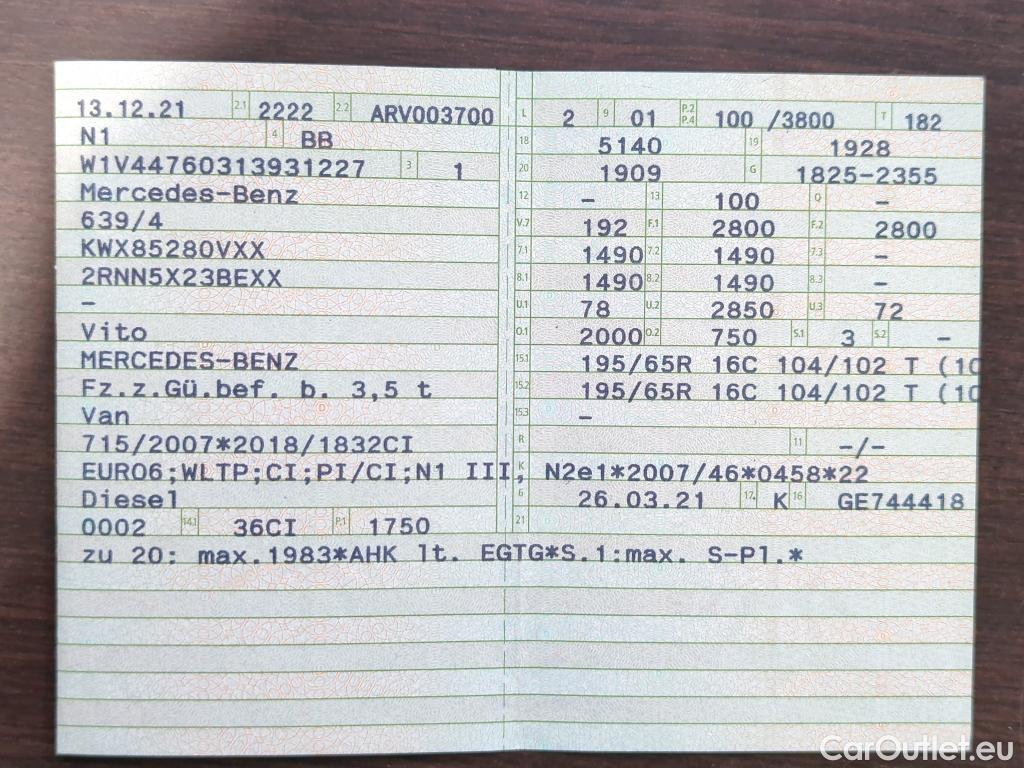 13.12.21 2.1 2222 2.2 ARV003700 L 2 9 01 P.2 P.4 100 /3800 T 182
N1 4 BB 18 5140 19 1928
W1V44760313931227 3 1 20 1909 G 1825-2355
Mercedes-Benz 12 - 13 100 Q -
639/4 V.7 192 F.1 2800 F.2 2800
KWX85280VXX 7.1 1490 7.2 1490 7.3 -
2RNN5X23BEXX 8.1 1490 8.2 1490 8.3 -
- U.1 78 U.2 2850 U.3 72
Vito O.1 2000 O.2 750 S.1 3 S.2 -
MERCEDES-BENZ 15.1 195/65R 16C 104/102 T (10
Fz.z.Gü.bef. b. 3,5 t 15.2 195/65R 16C 104/102 T (10
Van 15.3 -
715/2007*2018/1832CI R 11 -/-
EURO6;WLTP;CI;PI/CI;N1 III, N2 K e1*2007/46*0458*22
Diesel 6 26.03.21 17. K 16 GE744418
0002 14.1 36CI P.1 1750 21
zu 20: max.1983*AHK lt. EGTG*S.1:max. S-Pl.*
CarOutlet.eu